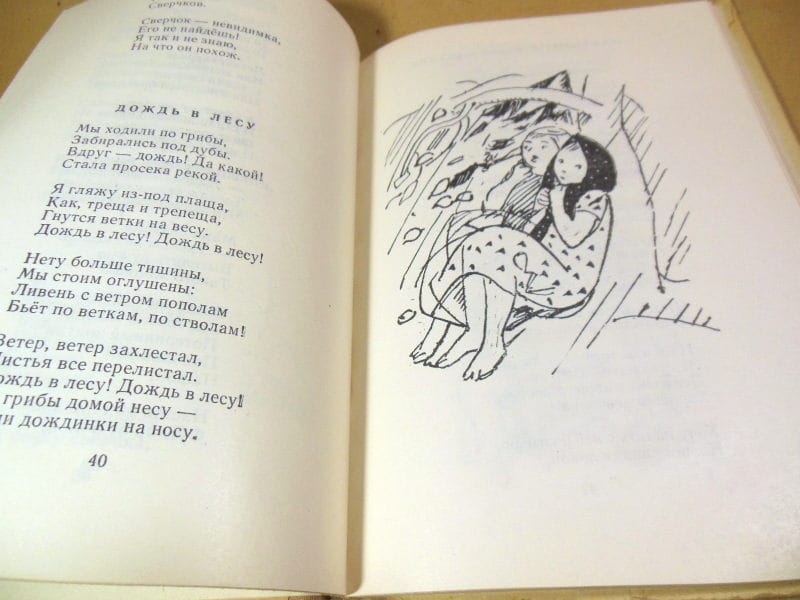 Сверчков.
Сверчок — невидимка,
Его не найдёшь!
Я так и не знаю,
На что он похож.
ДОЖДЬ В ЛЕСУ
Мы ходили по грибы,
Забирались под дубы.
Вдруг — дождь! Да какой!
Стала просека рекой.
Я гляжу из-под плаща,
Как, треща и трепеща,
Гнутся ветки на весу.
Дождь в лесу! Дождь в лесу!
Нету больше тишины,
Мы стоим оглушены:
Ливень с ветром пополам
Бьёт по веткам, по стволам!
Ветер, ветер захлестал,
Листья все перелистал.
Дождь в лесу! Дождь в лесу!
грибы домой несу —
дождинки на носу.
40